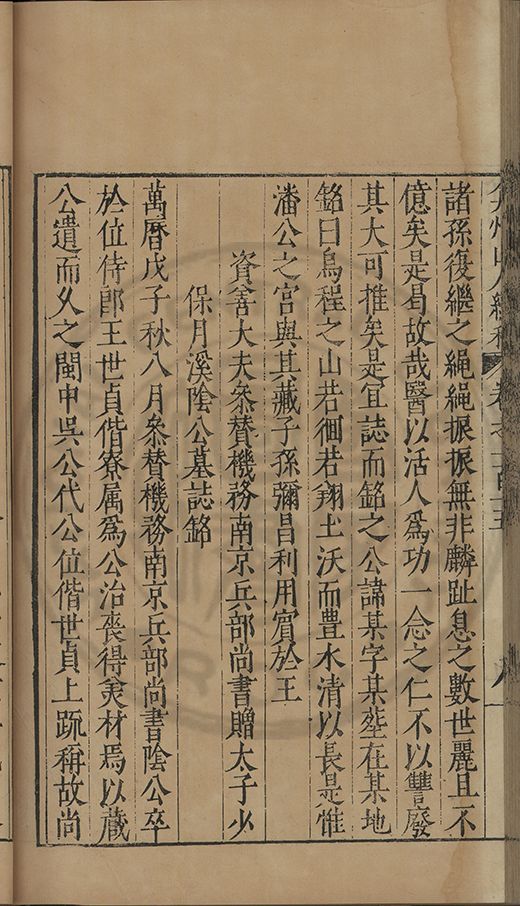 諸孫復繼之繩繩振振無非麟趾息之數世麗且不
億矣是曷故哉醫以活人爲功一念之仁不以讐廢
其大可推矣是宜誌而銘之公諱某字某塟在某地
銘曰烏程之山若徊若翔土沃而豊水清以長是惟
潘公之宮與其藏子孫彌昌利用賓於王
資善大夫叅賛機務南京兵部尚書贈太子少
保月溪陰公墓誌銘
萬曆戊子秋八月叅替機務南京兵部尚書陰公卒
於位侍郎王世貞偕寮属爲公治喪得美材焉以蔵
公遺而久之閩中吳公代公位偕世貞上䟽稱故尚